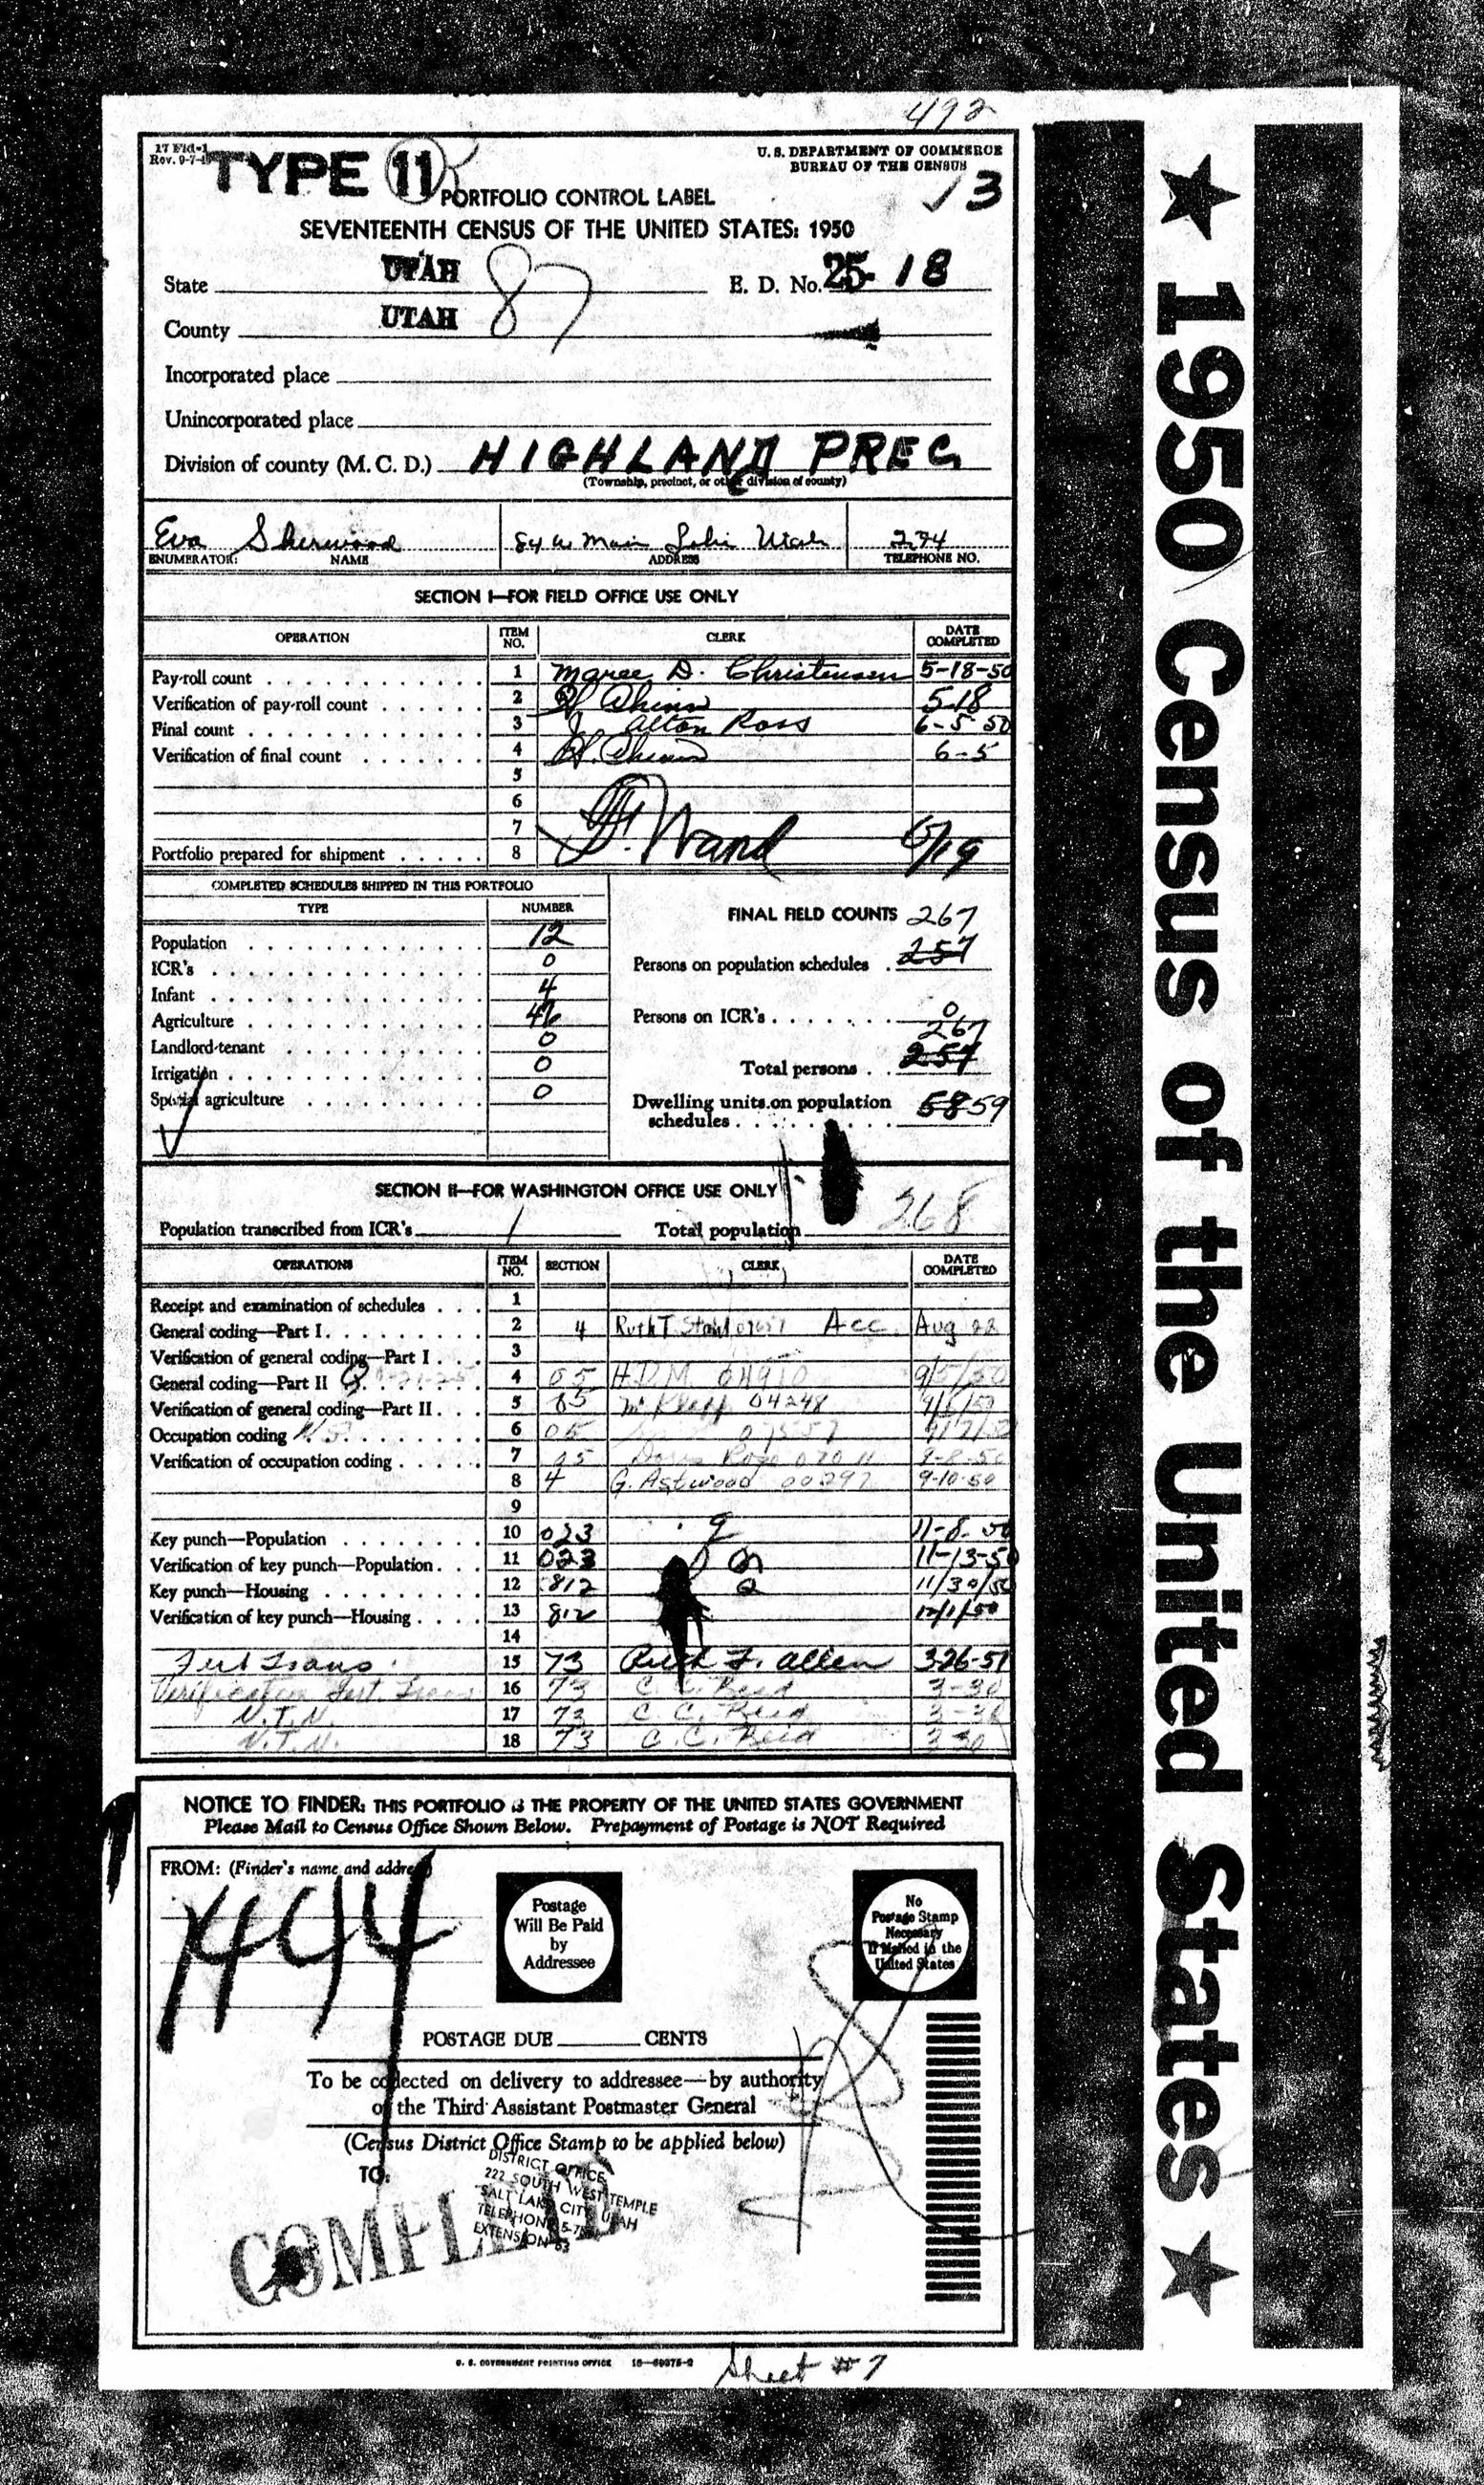 492
17 Fld-1
Rev. 9-7-49
TYPE 11
U. S. DEPARTMENT OF COMMERCE
BUREAU OF THE CENSUS
13
PORTFOLIO CONTROL LABEL
SEVENTEENTH CENSUS OF THE UNITED STATES: 1950
State UTAH E. D. No. 25-18
87
County UTAH
Incorporated place
Unincorporated place
Division of county (M. C. D.) HIGHLAND PREC
(Township, precinct, or other division of county)
Eva Sherwood 84 W Main Lehi Utah 274
ENUMERATOR: NAME ADDRESS TELEPHONE NO.
SECTION I—FOR FIELD OFFICE USE ONLY
OPERATION ITEM NO. CLERK DATE COMPLETED
Pay-roll count 1 D. Christensen 5-18-50
Verification of pay-roll count 2 5-18
Final count 3 J. Alton Ross 6-5-50
Verification of final count 4 6-5
5
6
7
Portfolio prepared for shipment 8 Wand 6/19
COMPLETED SCHEDULES SHIPPED IN THIS PORTFOLIO
TYPE NUMBER
Population 12
ICR's 0
Infant 4
Agriculture 46
Landlord-tenant 0
Irrigation 0
Special agriculture 0
FINAL FIELD COUNTS 267
Persons on population schedules 257
Persons on ICR's 0
267
Total persons 257
Dwelling units on population
schedules 58 59
SECTION II—FOR WASHINGTON OFFICE USE ONLY
Population transcribed from ICR's / Total population 268
OPERATIONS ITEM NO. SECTION CLERK DATE COMPLETED
Receipt and examination of schedules 1
General coding—Part I 2 4 Ruth T. Acc. Aug 22
Verification of general coding—Part I 3
General coding—Part II 4 05 H.D.M. 04910 9/5/50
Verification of general coding—Part II 5 05 04248 9/6/50
Occupation coding 6 05 07557 9/7/50
Verification of occupation coding 7 05 07011 9-8-50
8 4 G. Astwood 00297 9-10-50
9
Key punch—Population 10 023 11-8-50
Verification of key punch—Population 11 023 11-13-50
Key punch—Housing 12 812 11/30/50
Verification of key punch—Housing 13 812 12/1/50
14
Fert Trans. 15 73 Ruth F. Allen 3-26-51
Verification Fert. Trans 16 73 C. C. Reed 3-30
V.T.N. 17 73 C. C. Reed 3-30
V.T.N. 18 73 C. C. Reed 3-30
NOTICE TO FINDER: THIS PORTFOLIO IS THE PROPERTY OF THE UNITED STATES GOVERNMENT
Please Mail to Census Office Shown Below. Prepayment of Postage is NOT Required
FROM: (Finder's name and address)
1444
Postage
Will Be Paid
by
Addressee
No
Postage Stamp
Necessary
If Mailed in the
United States
POSTAGE DUE CENTS
To be collected on delivery to addressee—by authority
of the Third Assistant Postmaster General
(Census District Office Stamp to be applied below)
TO:
DISTRICT OFFICE
222 SOUTH WEST TEMPLE
SALT LAKE CITY, UTAH
TELEPHONE
EXTENSION 63
COMPLETED
U. S. GOVERNMENT PRINTING OFFICE 16—59275-2
Sheet #7
★ 1950 Census of the United States ★